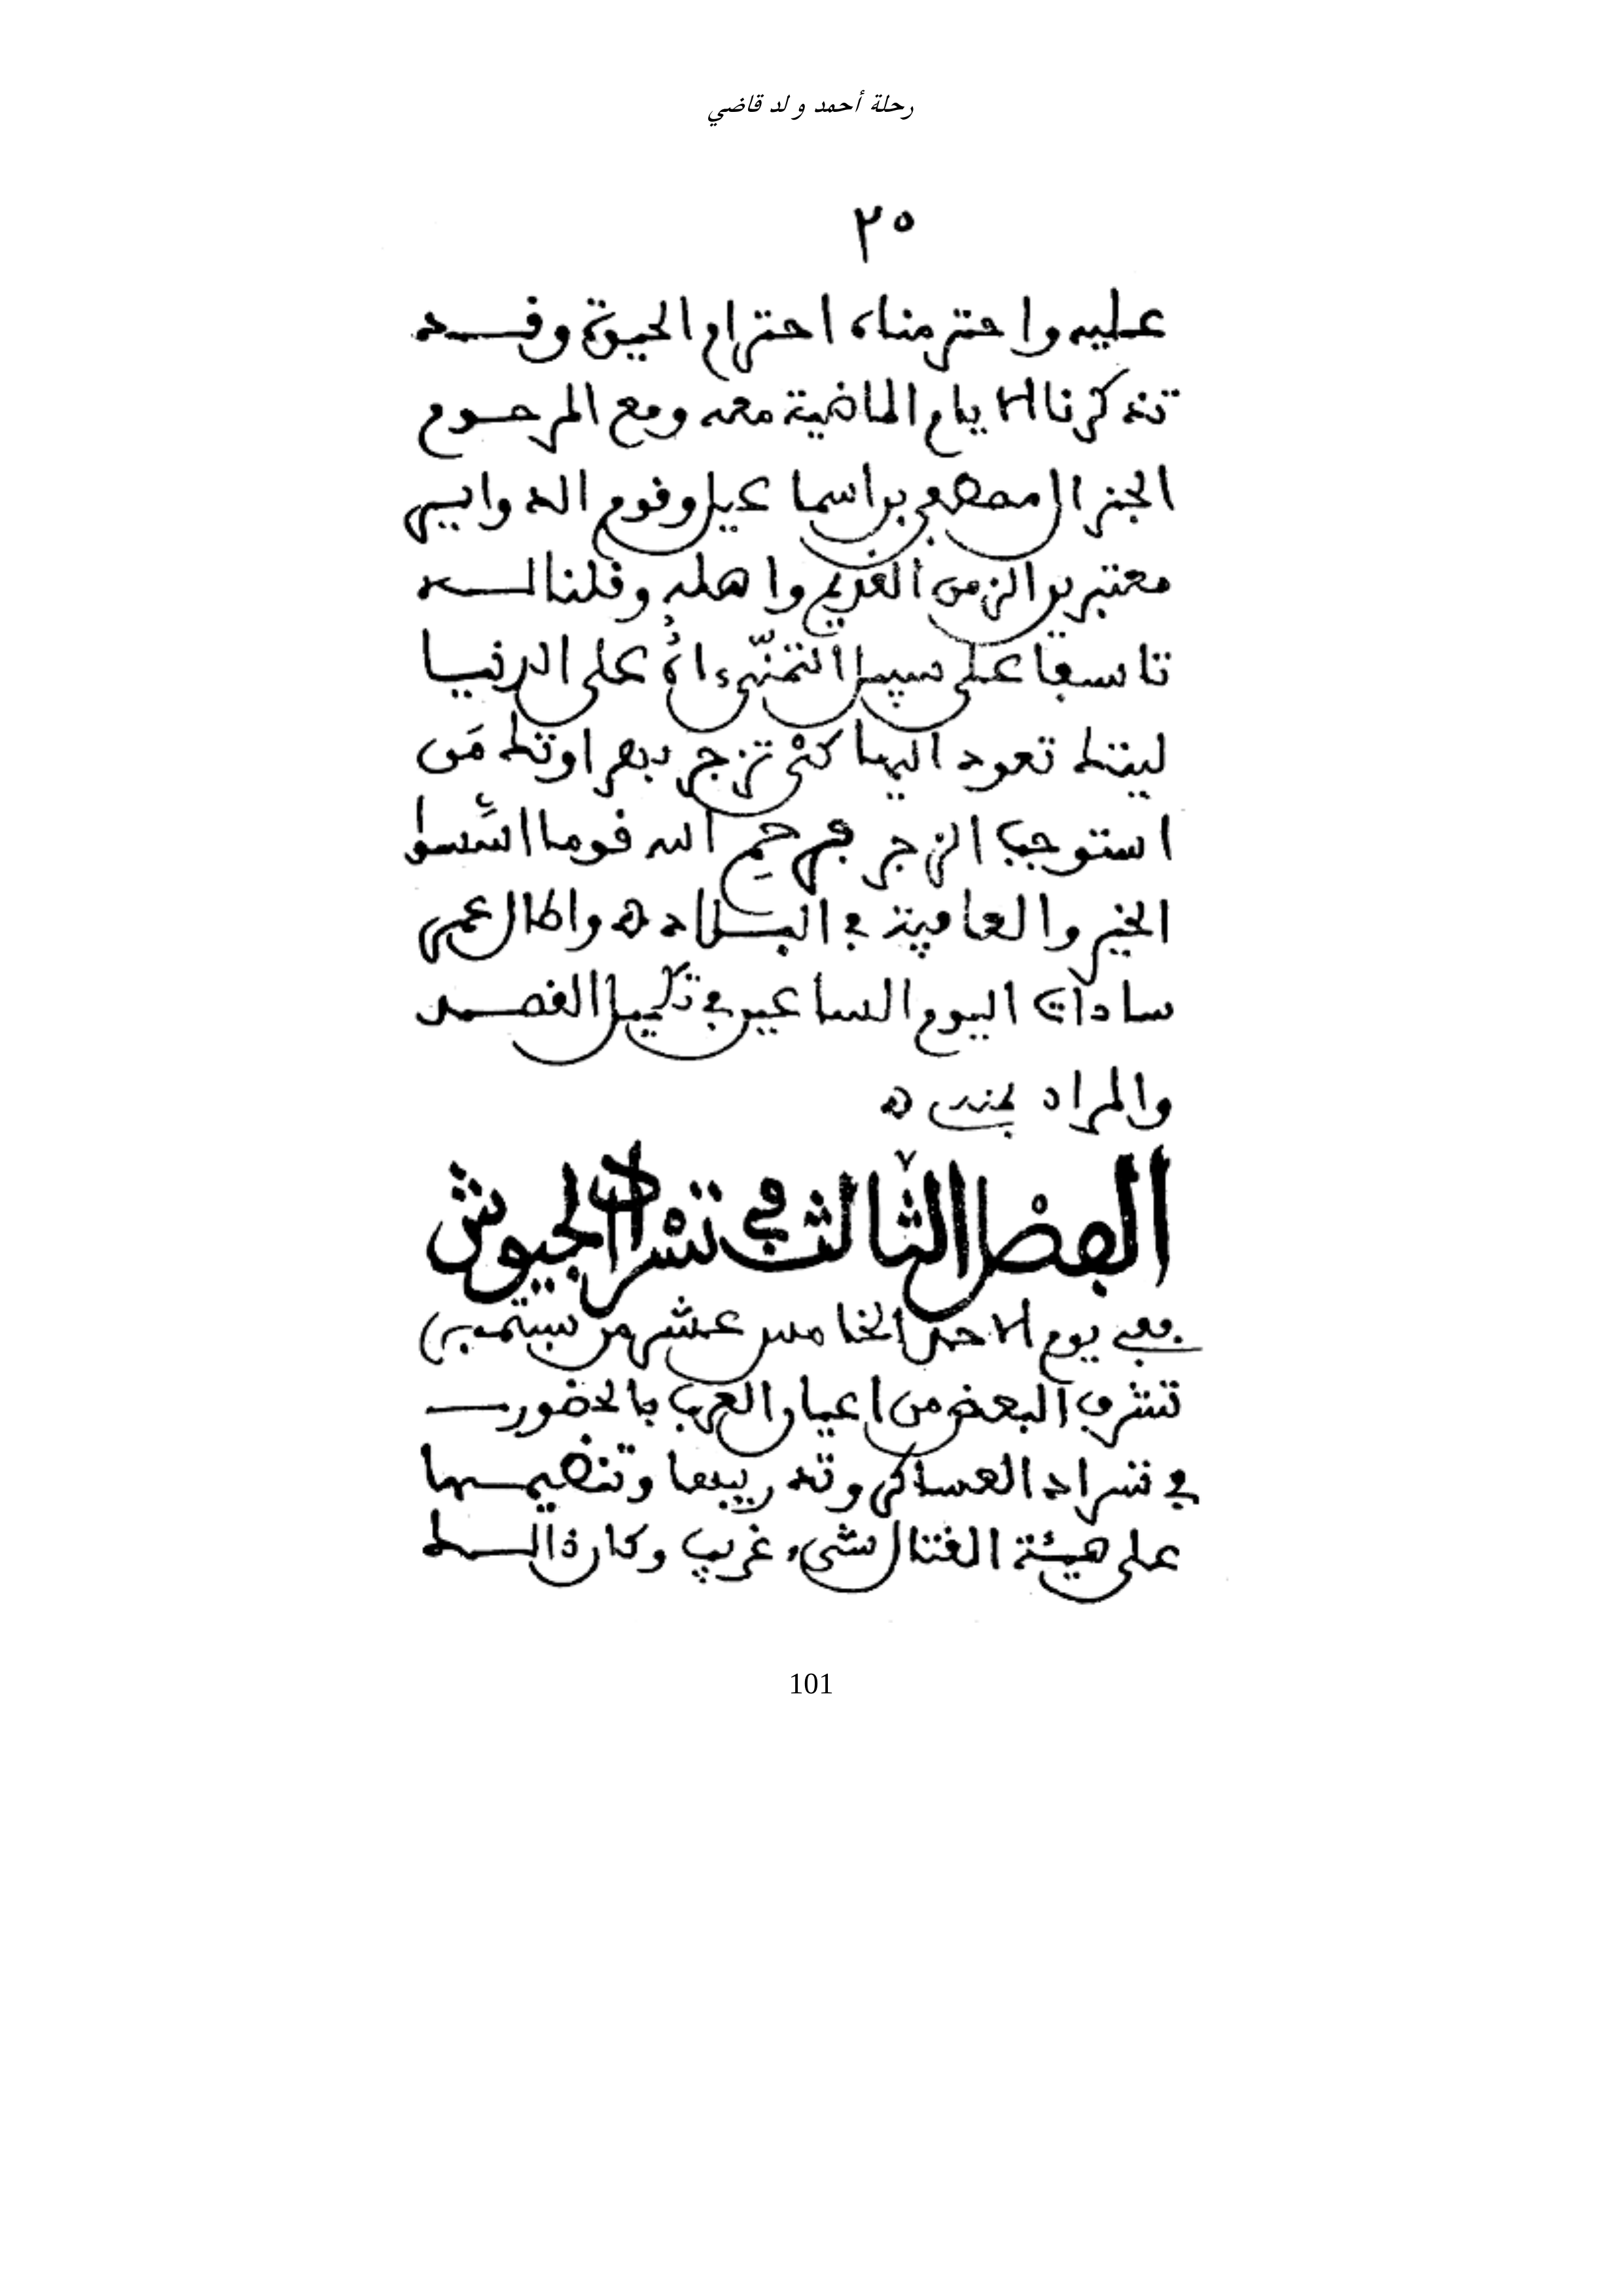 رحلة أحمد ولد قاضي
٢٥
عليه واحترمناه احترام الحيوة وقد
تذكرنا الايام الماضية معه ومع المرحوم
الجنرال مصطفى بن اسماعيل وقوم الدوايير
معتبرين الزمن القديم واهله وقلنا لـه
تاسفا على سبيل التمنّيء اهُ على الدنيا
ليتك تعود اليها كىْ تزجر بنصر اوتك مَن
استوجب الزجر فرحِم الله قوما اسَّسوا
الخير والعافية في البلاد ه واطال عمر
سادات اليوم الساعين في تكميل القصد
والمراد بمنه ه
الفصْل الثّالث في تسْراد الجيوش
ففي يوم الاحد الخامس عشر من سبتمبر
تشرف البعض من اعيان العرب بالحضور
في تسراد العساكر وتدريبها وتنظيمها
على هيئة القتال شيء غريب وكان ذالك
101